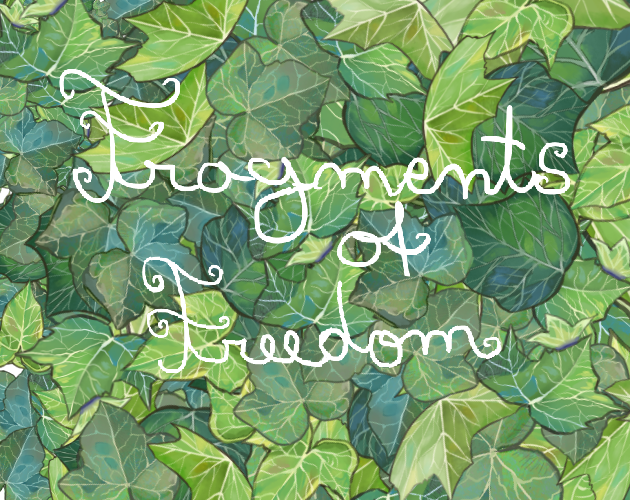 Fragments
of
Freedom